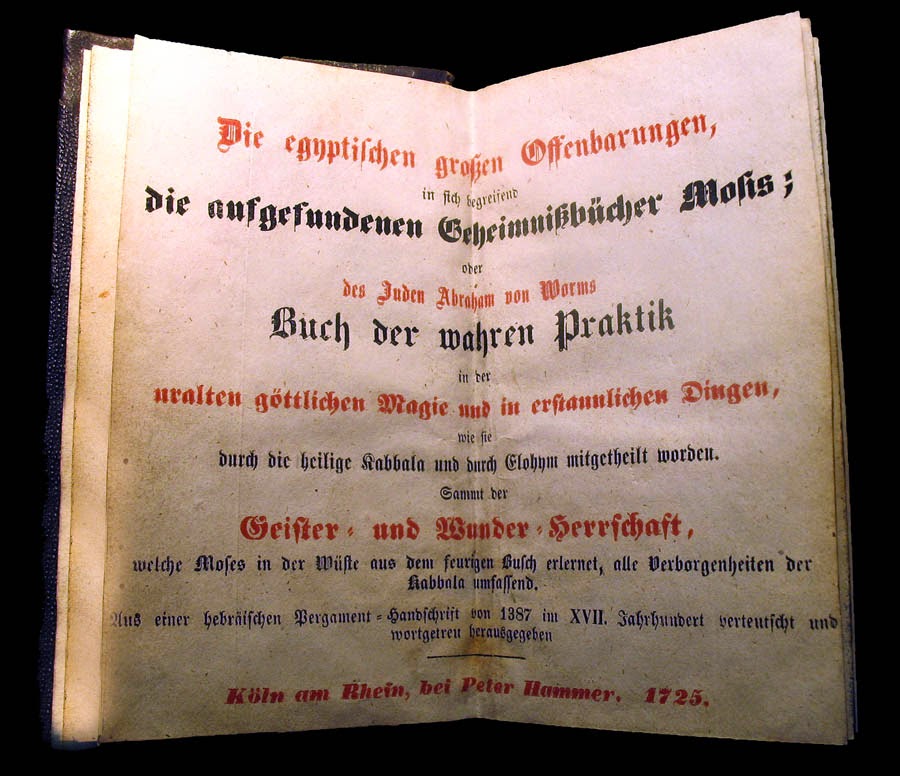 Die egyptischen großen Offenbarungen,
in sich begreifend
die aufgefundenen Geheimnißbücher Mosis;
oder
des Juden Abraham von Worms
Buch der wahren Praktik
in der
uralten göttlichen Magie und in erstaunlichen Dingen,
wie sie
durch die heilige Kabbala und durch Elohym mitgetheilt worden.
Sammt der
Geister- und Wunder-Herrschaft,
welche Moses in der Wüste aus dem feurigen Busch erlernet, alle Verborgenheiten der
Kabbala umfassend.
Aus einer hebräischen Pergament-Handschrift von 1387 im XVII. Jahrhundert verteutscht und
wortgetreu herausgegeben
Köln am Rhein, bei Peter Hammer, 1725.